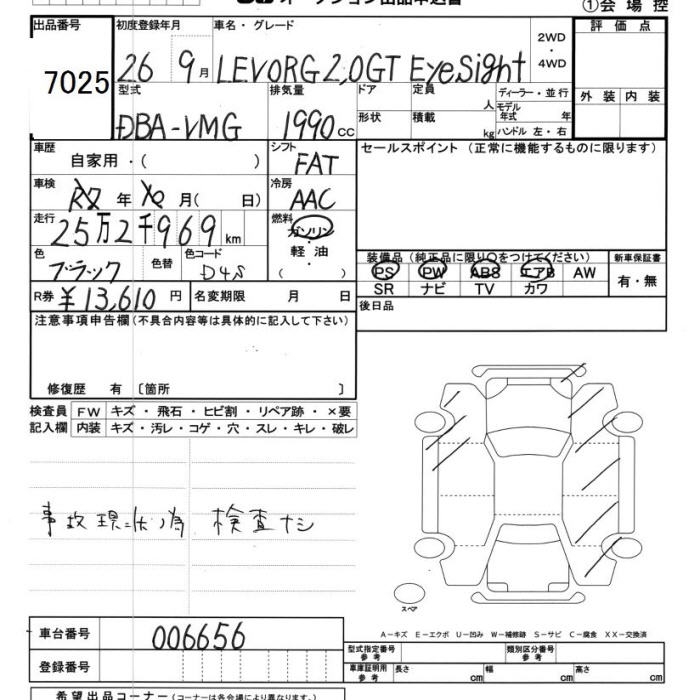 オークション出品申込書
①会場控
出品番号 初度登録年月 車名・グレード 評価点
7025
26 9月 LEVORG 2,0GT EyeSight 2WD・4WD
型式 排気量 ドア 定員 人 ディーラー・並行 外装 内装
DBA-VMG 1990cc 形状 積載 kg モデル年式 年 ハンドル 左・右
車歴 自家用・( ) シフト FAT セールスポイント (正常に機能するものに限ります)
車検 年 月( 日) 冷房 AAC
走行 25万2千969km 燃料 ガソリン・軽油・( )
色 ブラック 色替 色コード D4S
装備品 (純正品に限り○をつけてください) 新車保証書
PS PW ABS エアB AW 有・無
SR ナビ TV カワ
R券 ¥13,610円 名変期限 月 日 後日品
注意事項申告欄 (不具合内容等は具体的に記入して下さい)
修復歴 有 〔箇所 〕
検査員 FW キズ・飛石・ヒビ割・リペア跡・×要
記入欄 内装 キズ・汚レ・コゲ・穴・スレ・キレ・破レ
事故現状ノ為 検査ナシ
スペア
A-キズ E-エクボ U-凹み W-補修跡 S-サビ C-腐食 XX-交換済
車台番号 006656
型式指定番号 参考 類別区分番号 参考
登録番号
車庫証明用 参考 長さ cm 幅 cm 高さ cm
希望出品コーナー (コーナーは各会場により異なります。)